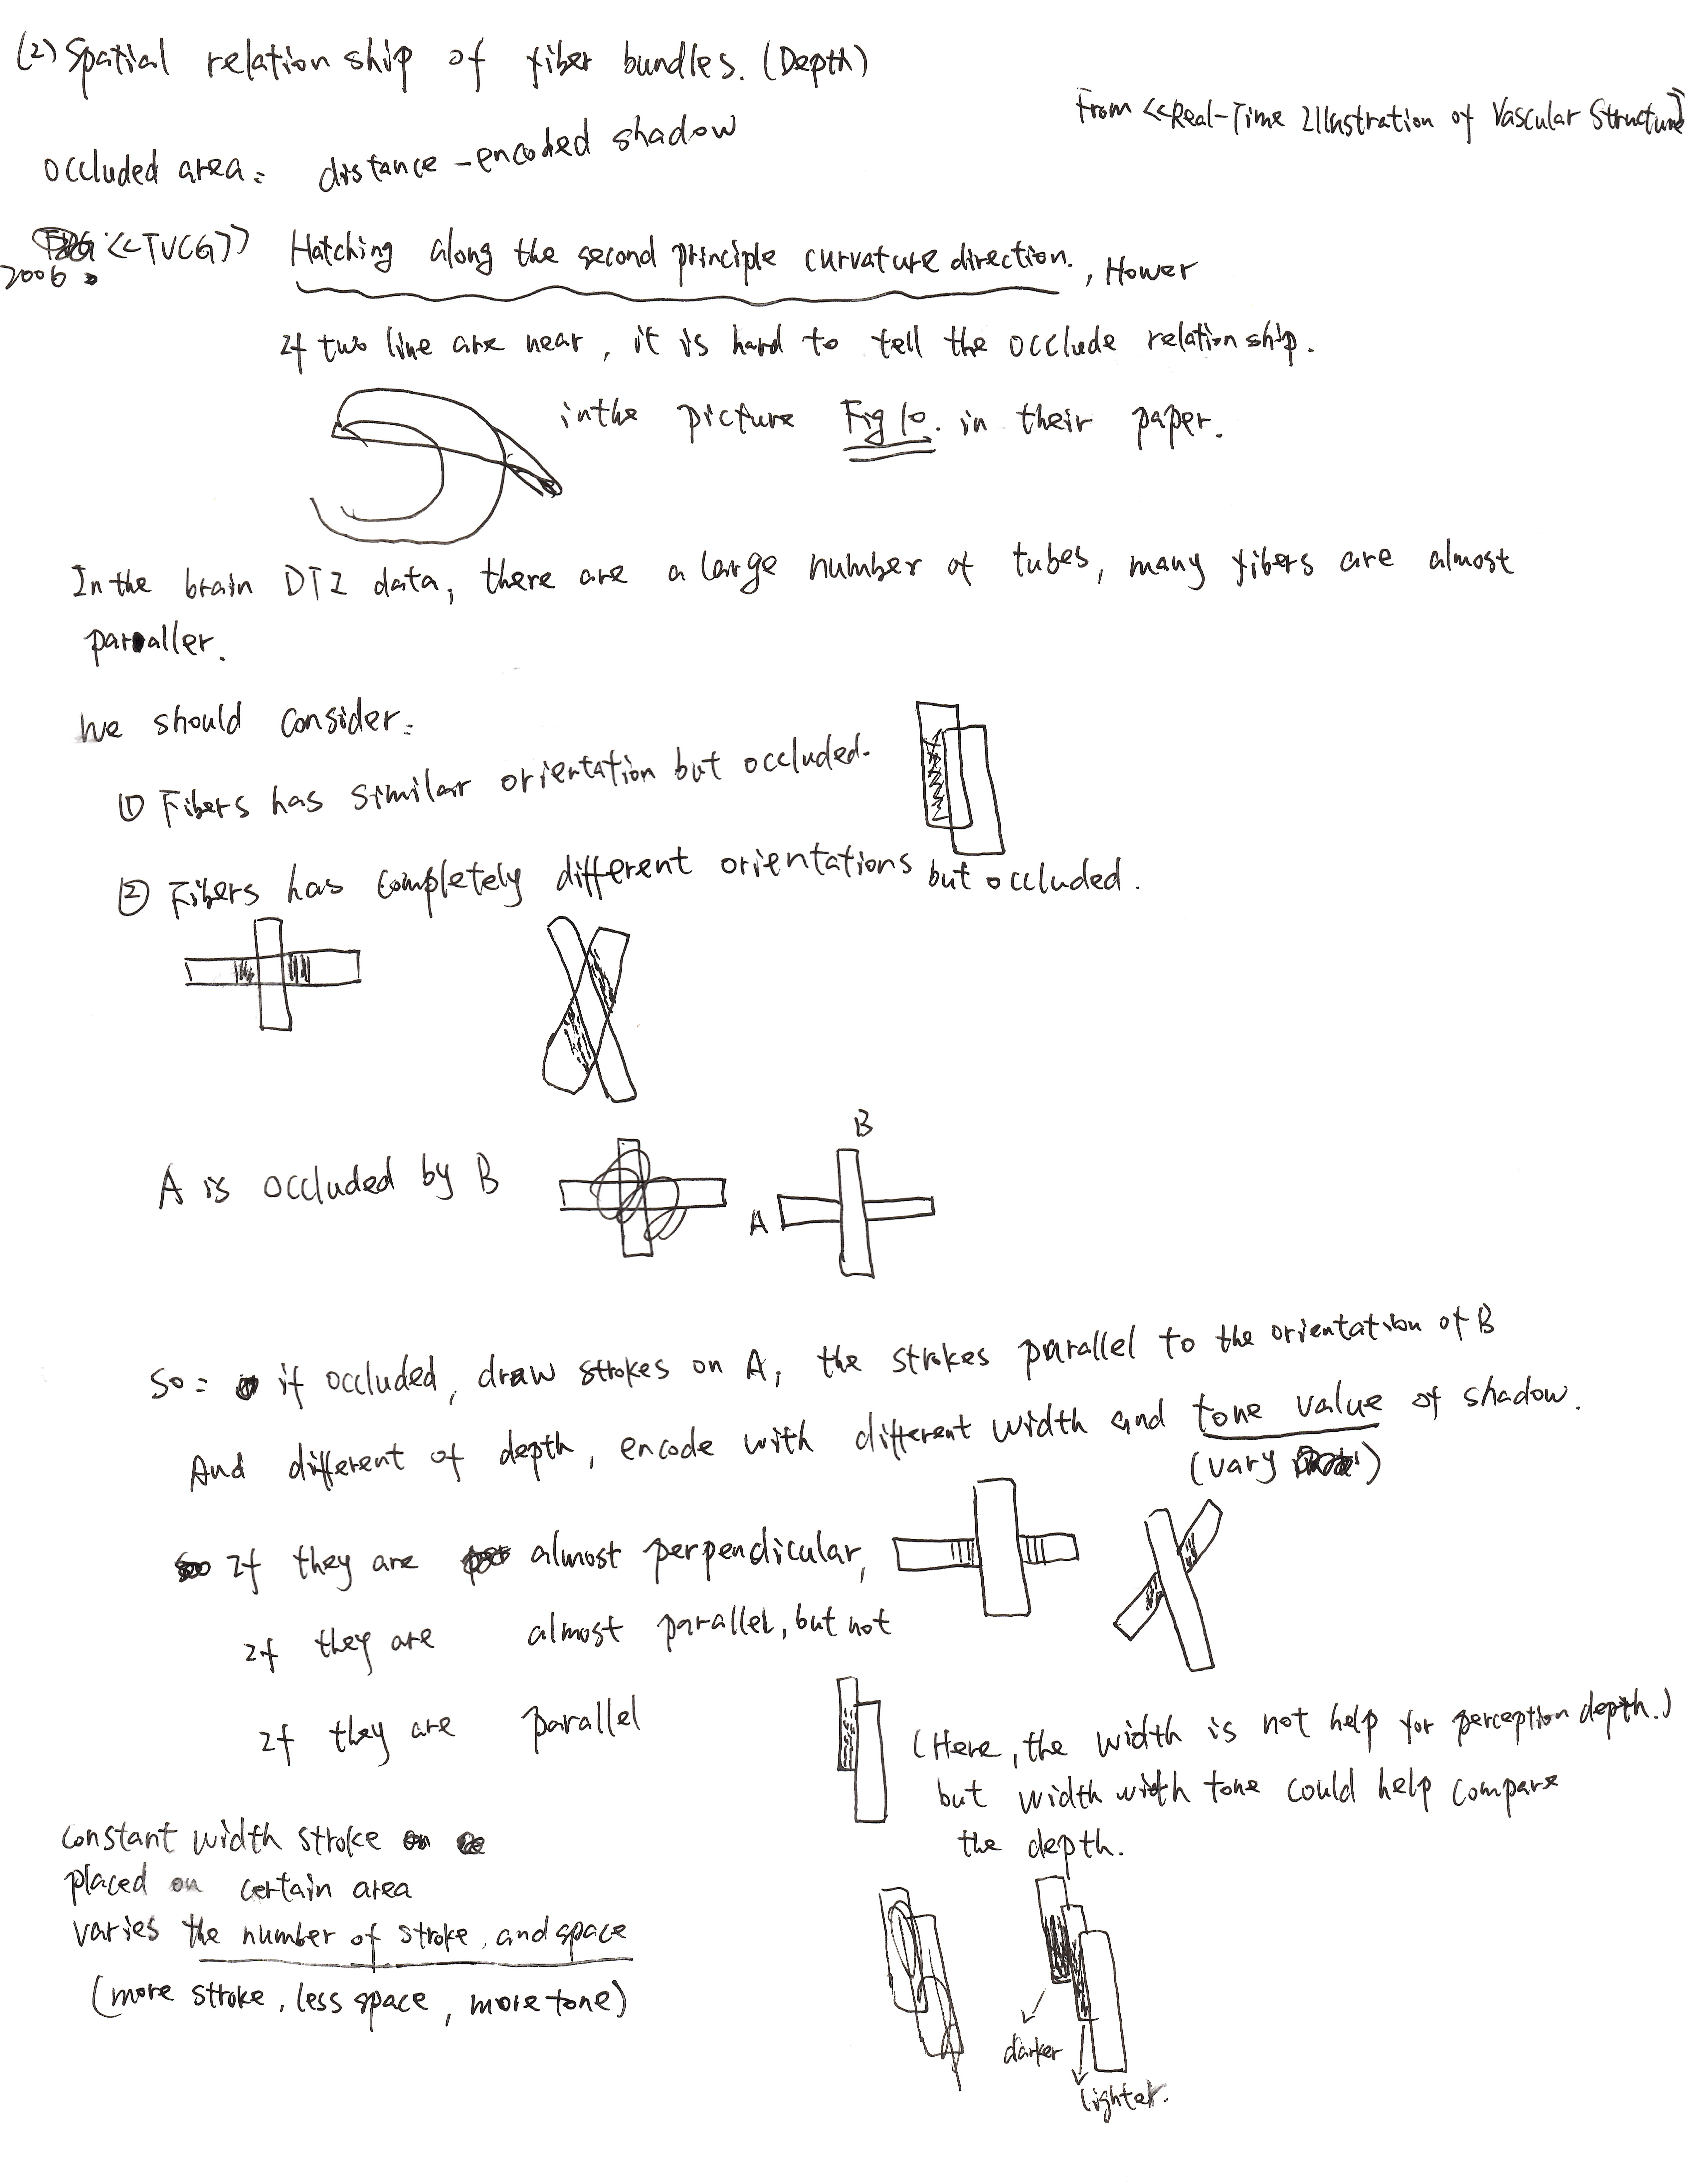 (2) Spatial relationship of fiber bundles. (Depth)
From <<Real-Time Illustration of Vascular Structure>>
occluded area: distance-encoded shadow
<<TVCG>> Hatching along the second principle curvature direction. , Hower
2006:
If two line are near, it is hard to tell the occlude relationship.
in the picture Fig 10. in their paper.
In the brain DTI data, there are a large number of tubes, many fibers are almost
paraller.
We should consider:
① Fibers has similar orientation but occluded.
② Fibers has completely different orientations but occluded.
A is occluded by B
B
A
So: if occluded, draw strokes on A, the strokes parallel to the orientation of B
And different of depth, encode with different width and tone value of shadow.
(vary)
If they are almost perpendicular,
If they are almost parallel, but not
If they are parallel
(Here, the width is not help for perception depth.)
but width with tone could help compare
the depth.
constant width stroke
placed on certain area
varies the number of stroke, and space
(more stroke, less space, more tone)
darker
lighter.